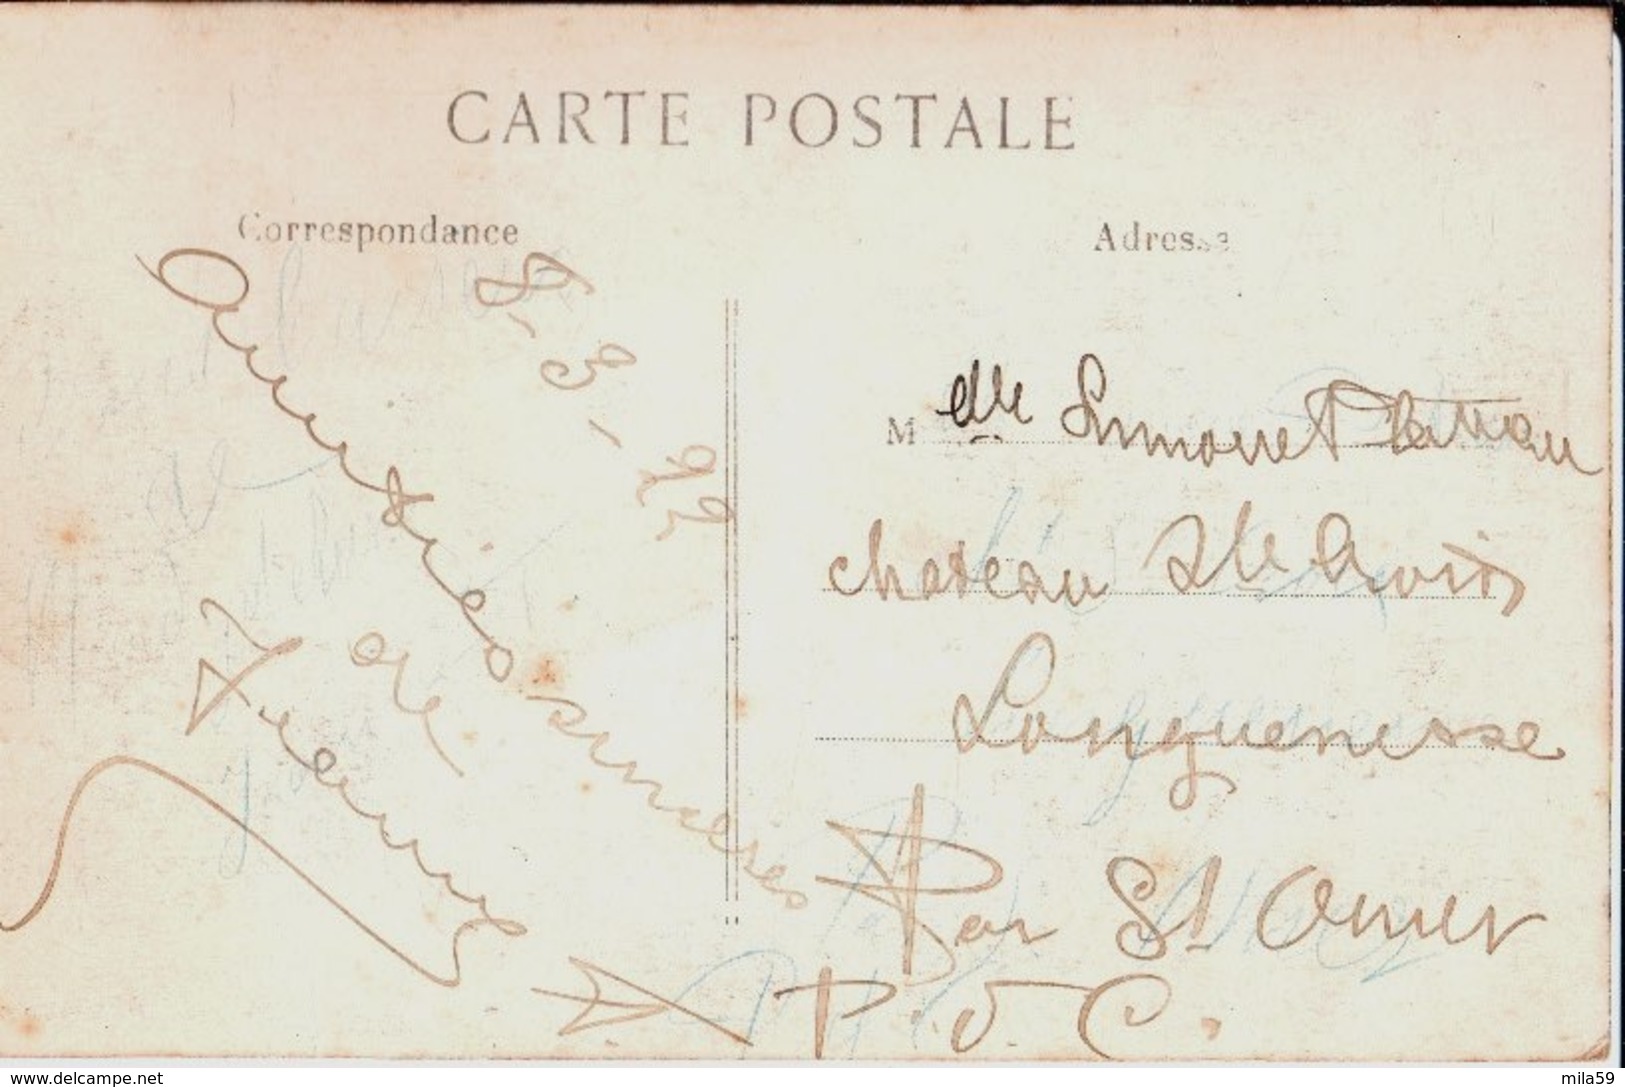 CARTE POSTALE
Correspondance
Adresse
8-3-22
Amitiés sincères
de
Jeanne
Melle Simonne Platiau
chateau Ste Croix
Longuenesse
Par St Omer
P. d. C.
www.delcampe.net
mila59